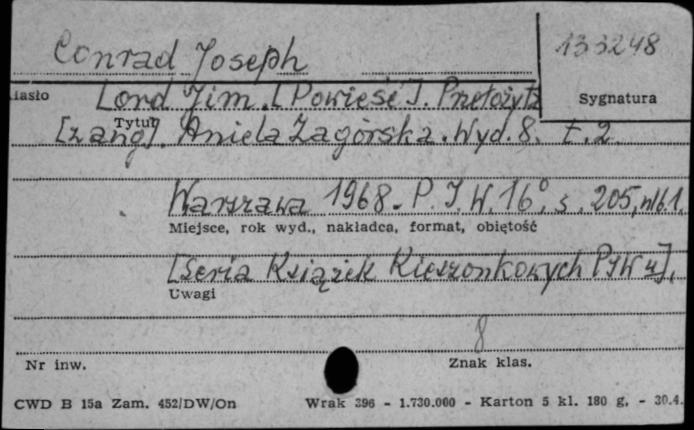 Conrad Joseph
133248
Hasło
Lord Jim. [Powieść]. Przełożyła
Sygnatura
Tytuł
[z ang]. Aniela Zagórska. Wyd. 8. t. 2.
Warszawa 1968. P.I.W. 16°, s. 205, nlb 1.
Miejsce, rok wyd., nakładca, format, objętość
[Seria Książek Kieszonkowych PIW-u].
Uwagi
8
Nr inw.
Znak klas.
CWD B 15a Zam. 452/DW/On Wrak 396 - 1.730.000 - Karton 5 kl. 180 g. - 30.4.